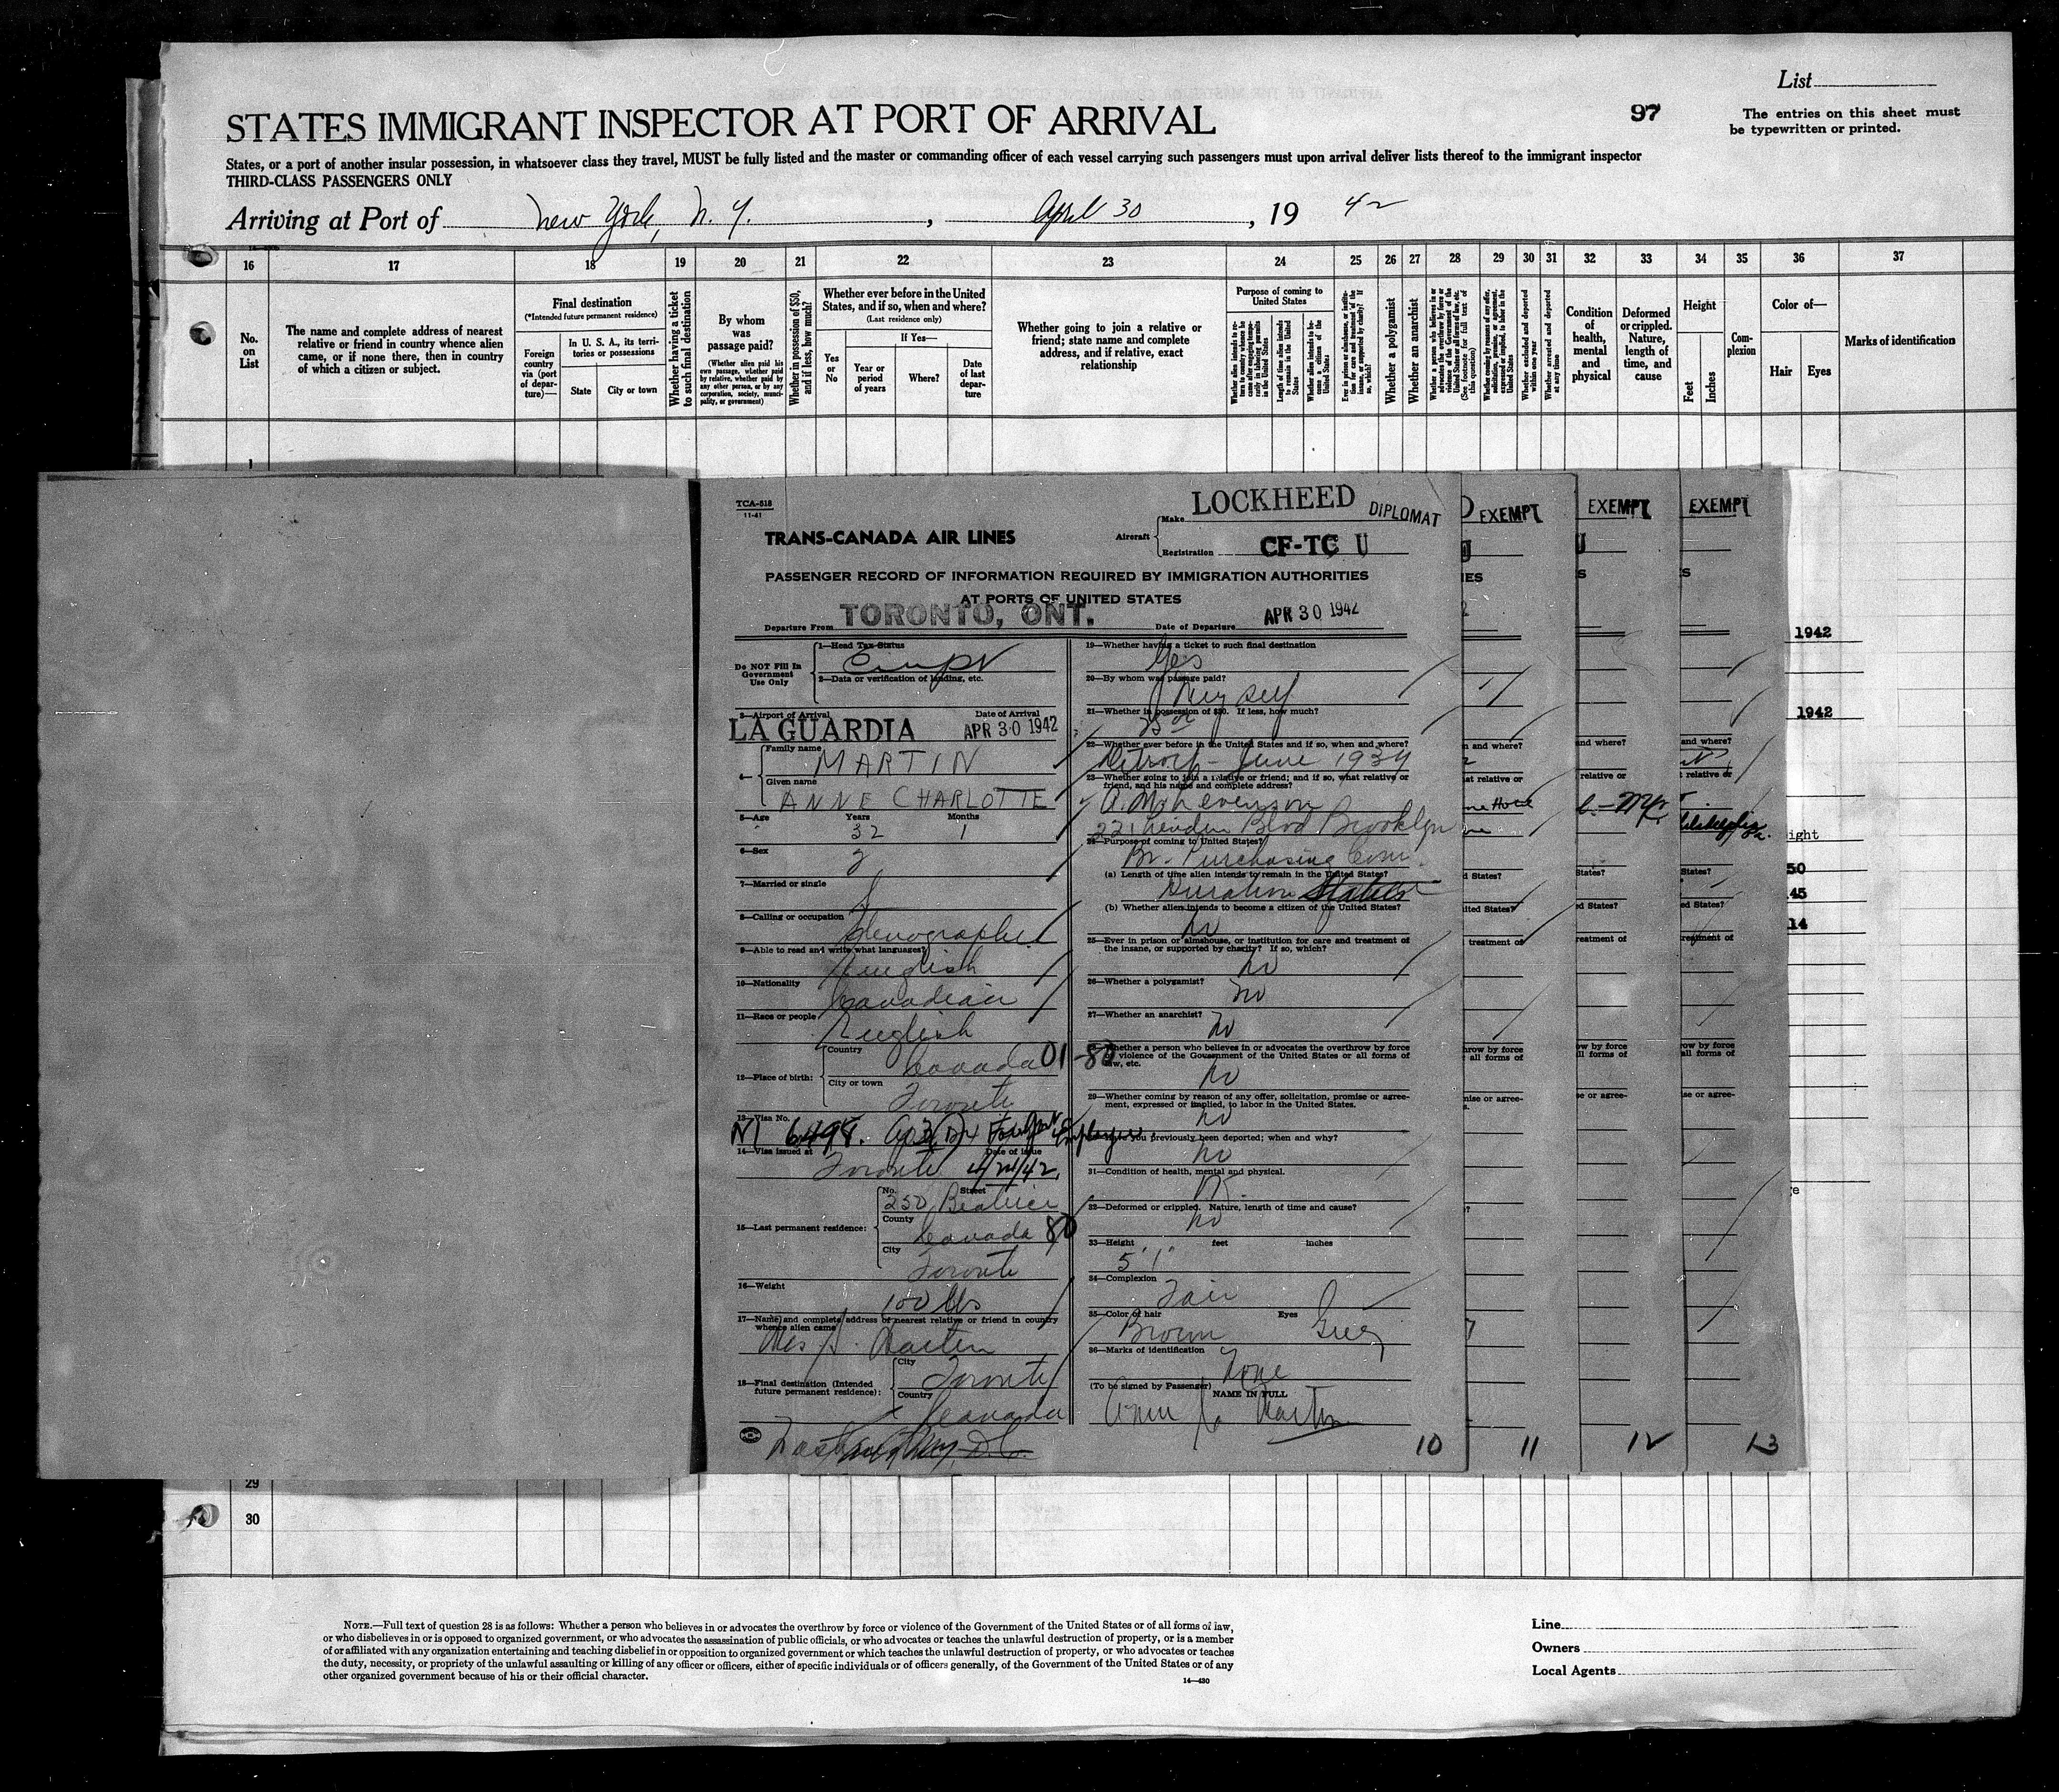 List
97
The entries on this sheet must
be typewritten or printed.
STATES IMMIGRANT INSPECTOR AT PORT OF ARRIVAL
States, or a port of another insular possession, in whatsoever class they travel, MUST be fully listed and the master or commanding officer of each vessel carrying such passengers must upon arrival deliver lists thereof to the immigrant inspector
THIRD-CLASS PASSENGERS ONLY
Arriving at Port of New York, N. Y. , April 30 , 19 42
16 17 18 19 20 21 22 23 24 25 26 27 28 29 30 31 32 33 34 35 36 37
No.
on
List
The name and complete address of nearest
relative or friend in country whence alien
came, or if none there, then in country
of which a citizen or subject.
Final destination
(*Intended future permanent residence)
Foreign
country
via (port
of depar-
ture)—
In U. S. A., its terri-
tories or possessions
State
City or town
Whether having a ticket
to such final destination
By whom
was
passage paid?
(Whether alien paid his
own passage, whether paid
by relative, whether paid by
any other person, or by any
corporation, society, munici-
pality, or government)
Whether in possession of $50,
and if less, how much?
Whether ever before in the United
States, and if so, when and where?
(Last residence only)
Yes
or
No
If Yes—
Year or
period
of years
Where?
Date
of last
depar-
ture
Whether going to join a relative or
friend; state name and complete
address, and if relative, exact
relationship
Purpose of coming to
United States
Length of time alien intends
to remain in the United
States
Whether alien intends to be-
come a citizen of the
United States
Whether a polygamist
Whether an anarchist
Whether excluded and deported
within one year
Whether arrested and deported
at any time
Condition
of
health,
mental
and
physical
Deformed
or crippled.
Nature,
length of
time, and
cause
Height
Feet
Inches
Com-
plexion
Color of—
Hair
Eyes
Marks of identification
1
TCA-518
11-41
TRANS-CANADA AIR LINES
Aircraft
Make LOCKHEED DIPLOMAT
Registration CF-TC U
PASSENGER RECORD OF INFORMATION REQUIRED BY IMMIGRATION AUTHORITIES
AT PORTS OF UNITED STATES
Departure From TORONTO, ONT.
Date of Departure APR 30 1942
Do NOT Fill In
Government
Use Only
1—Head Tax Status
2—Data or verification of landing, etc.
3—Airport of Arrival Date of Arrival
LA GUARDIA APR 30 1942
4—
Family name
MARTIN
Given name
ANNE CHARLOTTE
5—Age Years 32 Months 1
6—Sex
7—Married or single
S
8—Calling or occupation
Stenographer
9—Able to read and write what languages?
English
10—Nationality
Canadian
11—Race or people
English
12—Place of birth:
Country
Canada 01-80
City or town
Toronto
13—Visa No.
6498.
14—Visa issued at Date of issue
Toronto
15—Last permanent residence:
No. Street
250 Beatrice
County
Canada 80
City
Toronto
16—Weight
100 lbs
17—Name and complete address of nearest relative or friend in country
whence alien came
Martin
18—Final destination (Intended
future permanent residence):
City
Toronto
Country
Canada
19—Whether having a ticket to such final destination
Yes
20—By whom was passage paid?
Myself
21—Whether in possession of $50. If less, how much?
22—Whether ever before in the United States and if so, when and where?
Detroit - June 1934
23—Whether going to join a relative or friend; and if so, what relative or
friend, and his name and complete address?
Blvd Brooklyn
24—Purpose of coming to United States?
Br. Purchasing Com.
(a) Length of time alien intends to remain in the United States?
Duration
(b) Whether alien intends to become a citizen of the United States?
No
25—Ever in prison or almshouse, or institution for care and treatment of
the insane, or supported by charity? If so, which?
No
26—Whether a polygamist?
No
27—Whether an anarchist?
No
Whether a person who believes in or advocates the overthrow by force
or violence of the Government of the United States or all forms of
law, etc.
No
29—Whether coming by reason of any offer, solicitation, promise or agree-
ment, expressed or implied, to labor in the United States.
No
you previously been deported; when and why?
No
31—Condition of health, mental and physical.
32—Deformed or crippled. Nature, length of time and cause?
No
33—Height feet inches
5' 1"
34—Complexion
Fair
35—Color of hair Eyes
Brown Grey
36—Marks of identification
None
(To be signed by Passenger) NAME IN FULL
Martin
10
EXEMPT
11
EXEMPT
12
EXEMPT
13
1942
1942
ight
50
45
14
29
30
NOTE.—Full text of question 28 is as follows: Whether a person who believes in or advocates the overthrow by force or violence of the Government of the United States or of all forms of law,
or who disbelieves in or is opposed to organized government, or who advocates the assassination of public officials, or who advocates or teaches the unlawful destruction of property, or is a member
of or affiliated with any organization entertaining and teaching disbelief in or opposition to organized government or which teaches the unlawful destruction of property, or who advocates or teaches
the duty, necessity, or propriety of the unlawful assaulting or killing of any officer or officers, either of specific individuals or of officers generally, of the Government of the United States or of any
other organized government because of his or their official character.
14—430
Line
Owners
Local Agents